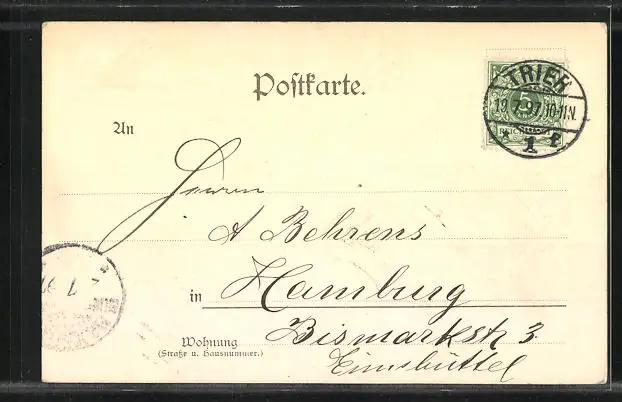 Postkarte.
TRIER
19.7.97.10-11N.
* 1 *
5
REICHSPOST
An
Herrn
A Behrens
in Hamburg
Wohnung Bismarkstr 3.
(Straße u. Hausnummer.)
Eimsbüttel
7 97